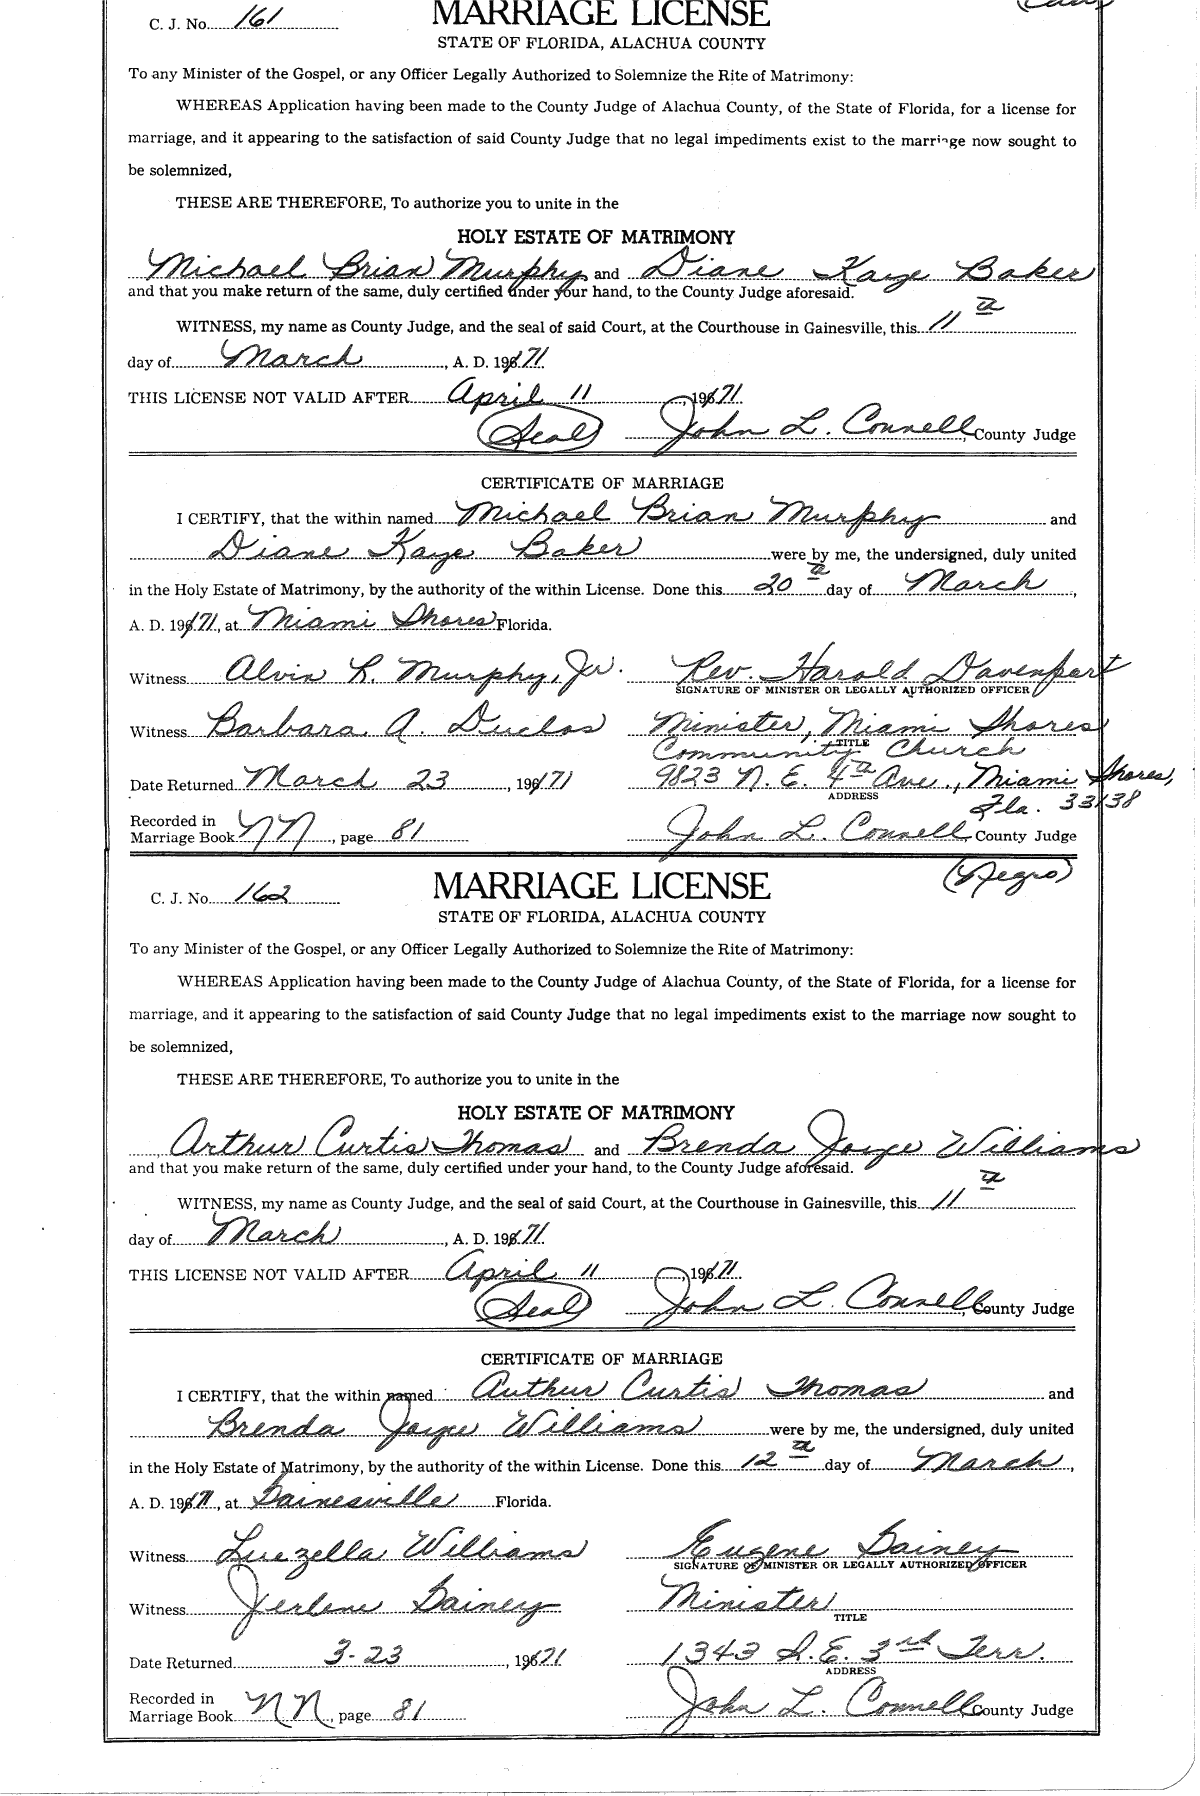 C. J. No. 161
MARRIAGE LICENSE
STATE OF FLORIDA, ALACHUA COUNTY
To any Minister of the Gospel, or any Officer Legally Authorized to Solemnize the Rite of Matrimony:
WHEREAS Application having been made to the County Judge of Alachua County, of the State of Florida, for a license for
marriage, and it appearing to the satisfaction of said County Judge that no legal impediments exist to the marriage now sought to
be solemnized,
THESE ARE THEREFORE, To authorize you to unite in the
HOLY ESTATE OF MATRIMONY
Michael Brian Murphy and Diane Kaye Baker
and that you make return of the same, duly certified under your hand, to the County Judge aforesaid.
WITNESS, my name as County Judge, and the seal of said Court, at the Courthouse in Gainesville, this 11th
day of March, A. D. 1971
THIS LICENSE NOT VALID AFTER April 11, 1971
(Seal) John L. Connell, County Judge
CERTIFICATE OF MARRIAGE
I CERTIFY, that the within named Michael Brian Murphy and
Diane Kaye Baker were by me, the undersigned, duly united
in the Holy Estate of Matrimony, by the authority of the within License. Done this 20th day of March,
A. D. 1971, at Miami Shores Florida.
Witness Alvin R. Murphy, Jr. Rev. Harold Davenport
SIGNATURE OF MINISTER OR LEGALLY AUTHORIZED OFFICER
Witness Barbara A. Duclos Minister, Miami Shores
Community Church
TITLE
Date Returned March 23, 1971 9823 N. E. 4th Ave., Miami Shores,
ADDRESS Fla. 33138
Recorded in
Marriage Book NN, page 81 John L. Connell, County Judge
(Negro)
C. J. No. 162
MARRIAGE LICENSE
STATE OF FLORIDA, ALACHUA COUNTY
To any Minister of the Gospel, or any Officer Legally Authorized to Solemnize the Rite of Matrimony:
WHEREAS Application having been made to the County Judge of Alachua County, of the State of Florida, for a license for
marriage, and it appearing to the satisfaction of said County Judge that no legal impediments exist to the marriage now sought to
be solemnized,
THESE ARE THEREFORE, To authorize you to unite in the
HOLY ESTATE OF MATRIMONY
Arthur Curtis Thomas and Brenda Joyce Williams
and that you make return of the same, duly certified under your hand, to the County Judge aforesaid.
WITNESS, my name as County Judge, and the seal of said Court, at the Courthouse in Gainesville, this 11th
day of March, A. D. 1971
THIS LICENSE NOT VALID AFTER April 11, 1971
(Seal) John L. Connell, County Judge
CERTIFICATE OF MARRIAGE
I CERTIFY, that the within named Arthur Curtis Thomas and
Brenda Joyce Williams were by me, the undersigned, duly united
in the Holy Estate of Matrimony, by the authority of the within License. Done this 12th day of March,
A. D. 1971, at Gainesville Florida.
Witness Luezella Williams Eugene Gainey
SIGNATURE OF MINISTER OR LEGALLY AUTHORIZED OFFICER
Witness Jerlene Gainey Minister
TITLE
Date Returned 3-23, 1971 1343 S. E. 3rd Terr.
ADDRESS
Recorded in
Marriage Book NN, page 81 John L. Connell, County Judge